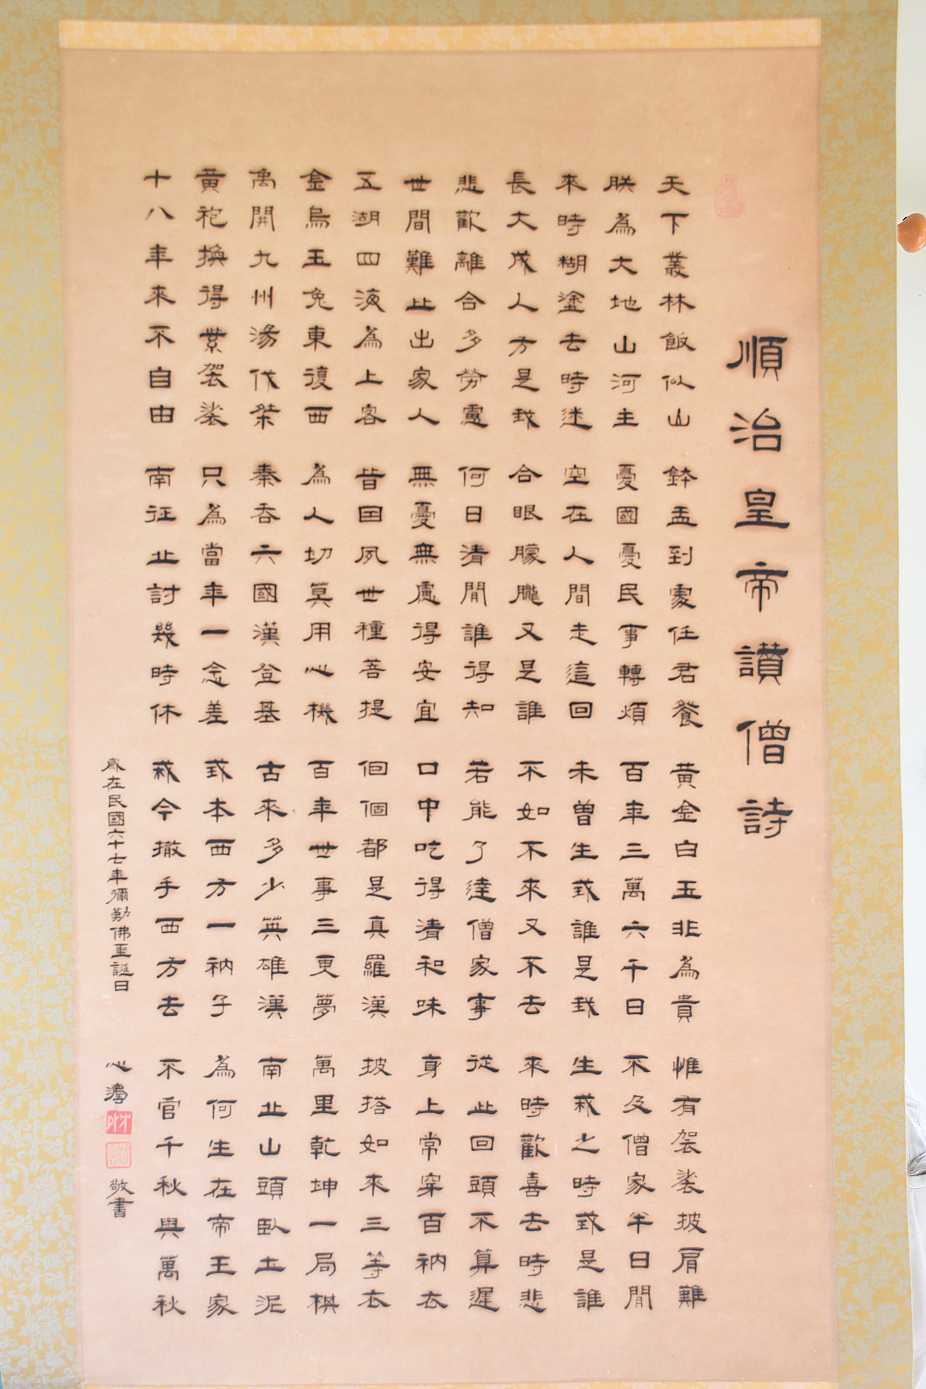 順治皇帝讚僧詩
天下叢林飯似山 鉢盂到處任君餐 黃金白玉非為貴 惟有袈裟披肩難
朕為大地山河主 憂國憂民事轉煩 百年三萬六千日 不及僧家半日閒
來時糊塗去時迷 空在人間走這回 未曾生我誰是我 生我之時我是誰
長大成人方是我 合眼朦朧又是誰 不如不來又不去 來時歡喜去時悲
悲歡離合多勞慮 何日清閒誰得知 若能了達僧家事 從此回頭不算遲
世間難比出家人 無憂無慮得安宜 口中吃得清和味 身上常穿百衲衣
五湖四海為上客 皆因夙世種菩提 個個都是真羅漢 披搭如來三等衣
金烏玉兔東復西 為人切莫用心機 百年世事三更夢 萬里乾坤一局棋
禹開九州湯伐桀 秦吞六國漢登基 古來多少英雄漢 南北山頭臥土泥
黃袍換得紫袈裟 只為當年一念差 我本西方一衲子 為何生在帝王家
十八年來不自由 南征北討幾時休 我今撤手西方去 不官千秋與萬秋
歲在民國六十七年彌勒佛聖誕日 心澹 敬書